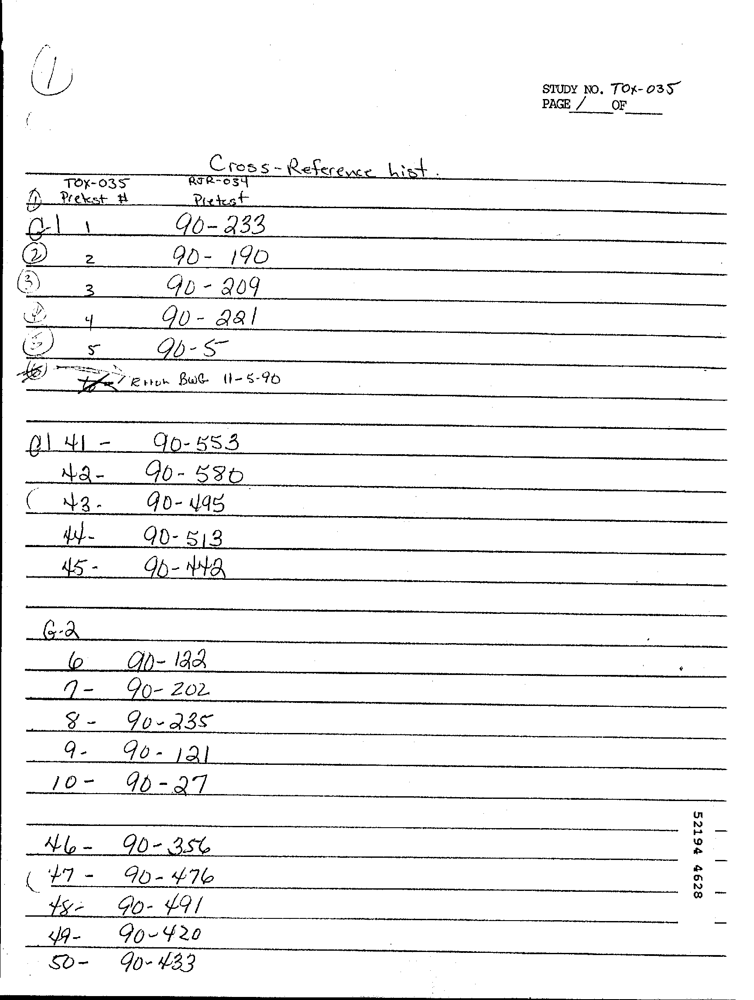 1
STUDY NO. TOX-035
PAGE 1 OF
Cross-Reference List.
TOX-035 RJR-034
1 Pretest # Pretest
G1 1 90-233
2 2 90-190
3 3 90-209
4 4 90-221
5 5 90-5
6 Error BWG 11-5-90
G1 41- 90-553
42- 90-580
43- 90-495
44- 90-513
45- 90-442
G-2
6 90-122
7- 90-202
8- 90-235
9- 90-121
10- 90-27
46- 90-356
47- 90-476
48- 90-491
49- 90-420
50- 90-433
52194 4628